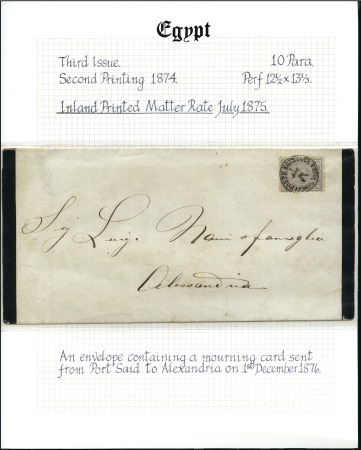 Egypt
Third Issue. 10 Para.
Second Printing 1874. Perf 12½ x 13⅓.
Inland Printed Matter Rate July 1875.
Sig Luigi Nani e famiglia
Alessandria
An envelope containing a mourning card sent
from Port Said to Alexandria on 1st December 1876.